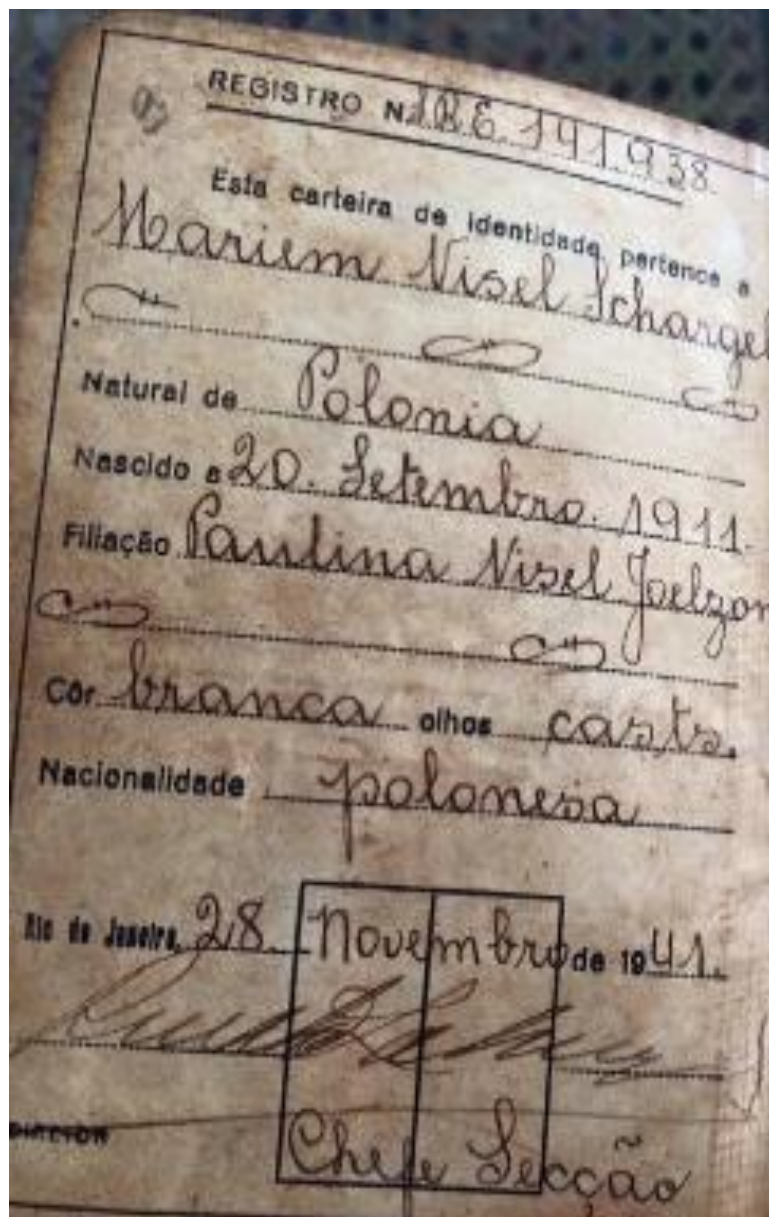 REGISTRO N. 1RE. 141.938.
Esta carteira de identidade pertence a
Mariem Nisel Schargel
Natural de Polonia
Nascido a 20. Setembro. 1911.
Filiação Paulina Nisel Joelzon
Côr branca olhos casts.
Nacionalidade polonesa
Rio de Janeiro, 28 Novembro de 1941.
DIRETOR
Chefe Secção